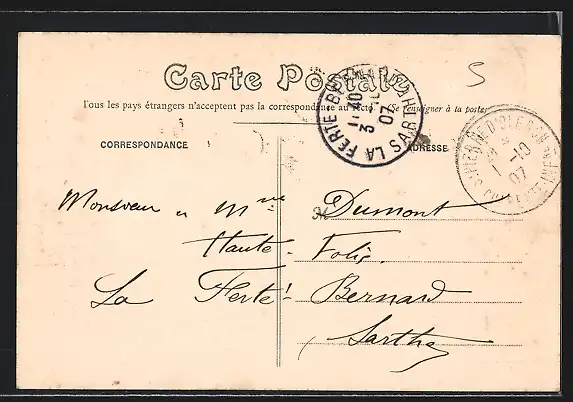 Carte Postale
Tous les pays étrangers n'acceptent pas la correspondance au recto. (Se renseigner à la poste)
CORRESPONDANCE
ADRESSE
LA FERTE-BERNARD SARTHE
3 07
ST PIERRE D'OLERON
07
S
Monsieur et Mme Dumont
Haute-Folie.
La Ferté-Bernard
Sarthe